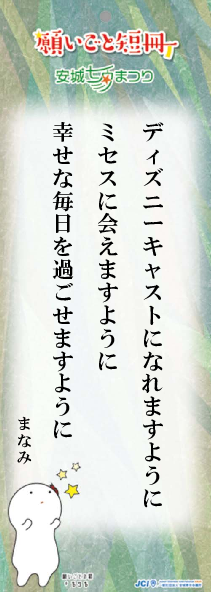 願いごと短冊
安城七夕まつり
ディズニーキャストになれますように
ミセスに会えますように
幸せな毎日を過ごせますように
まなみ
JCI